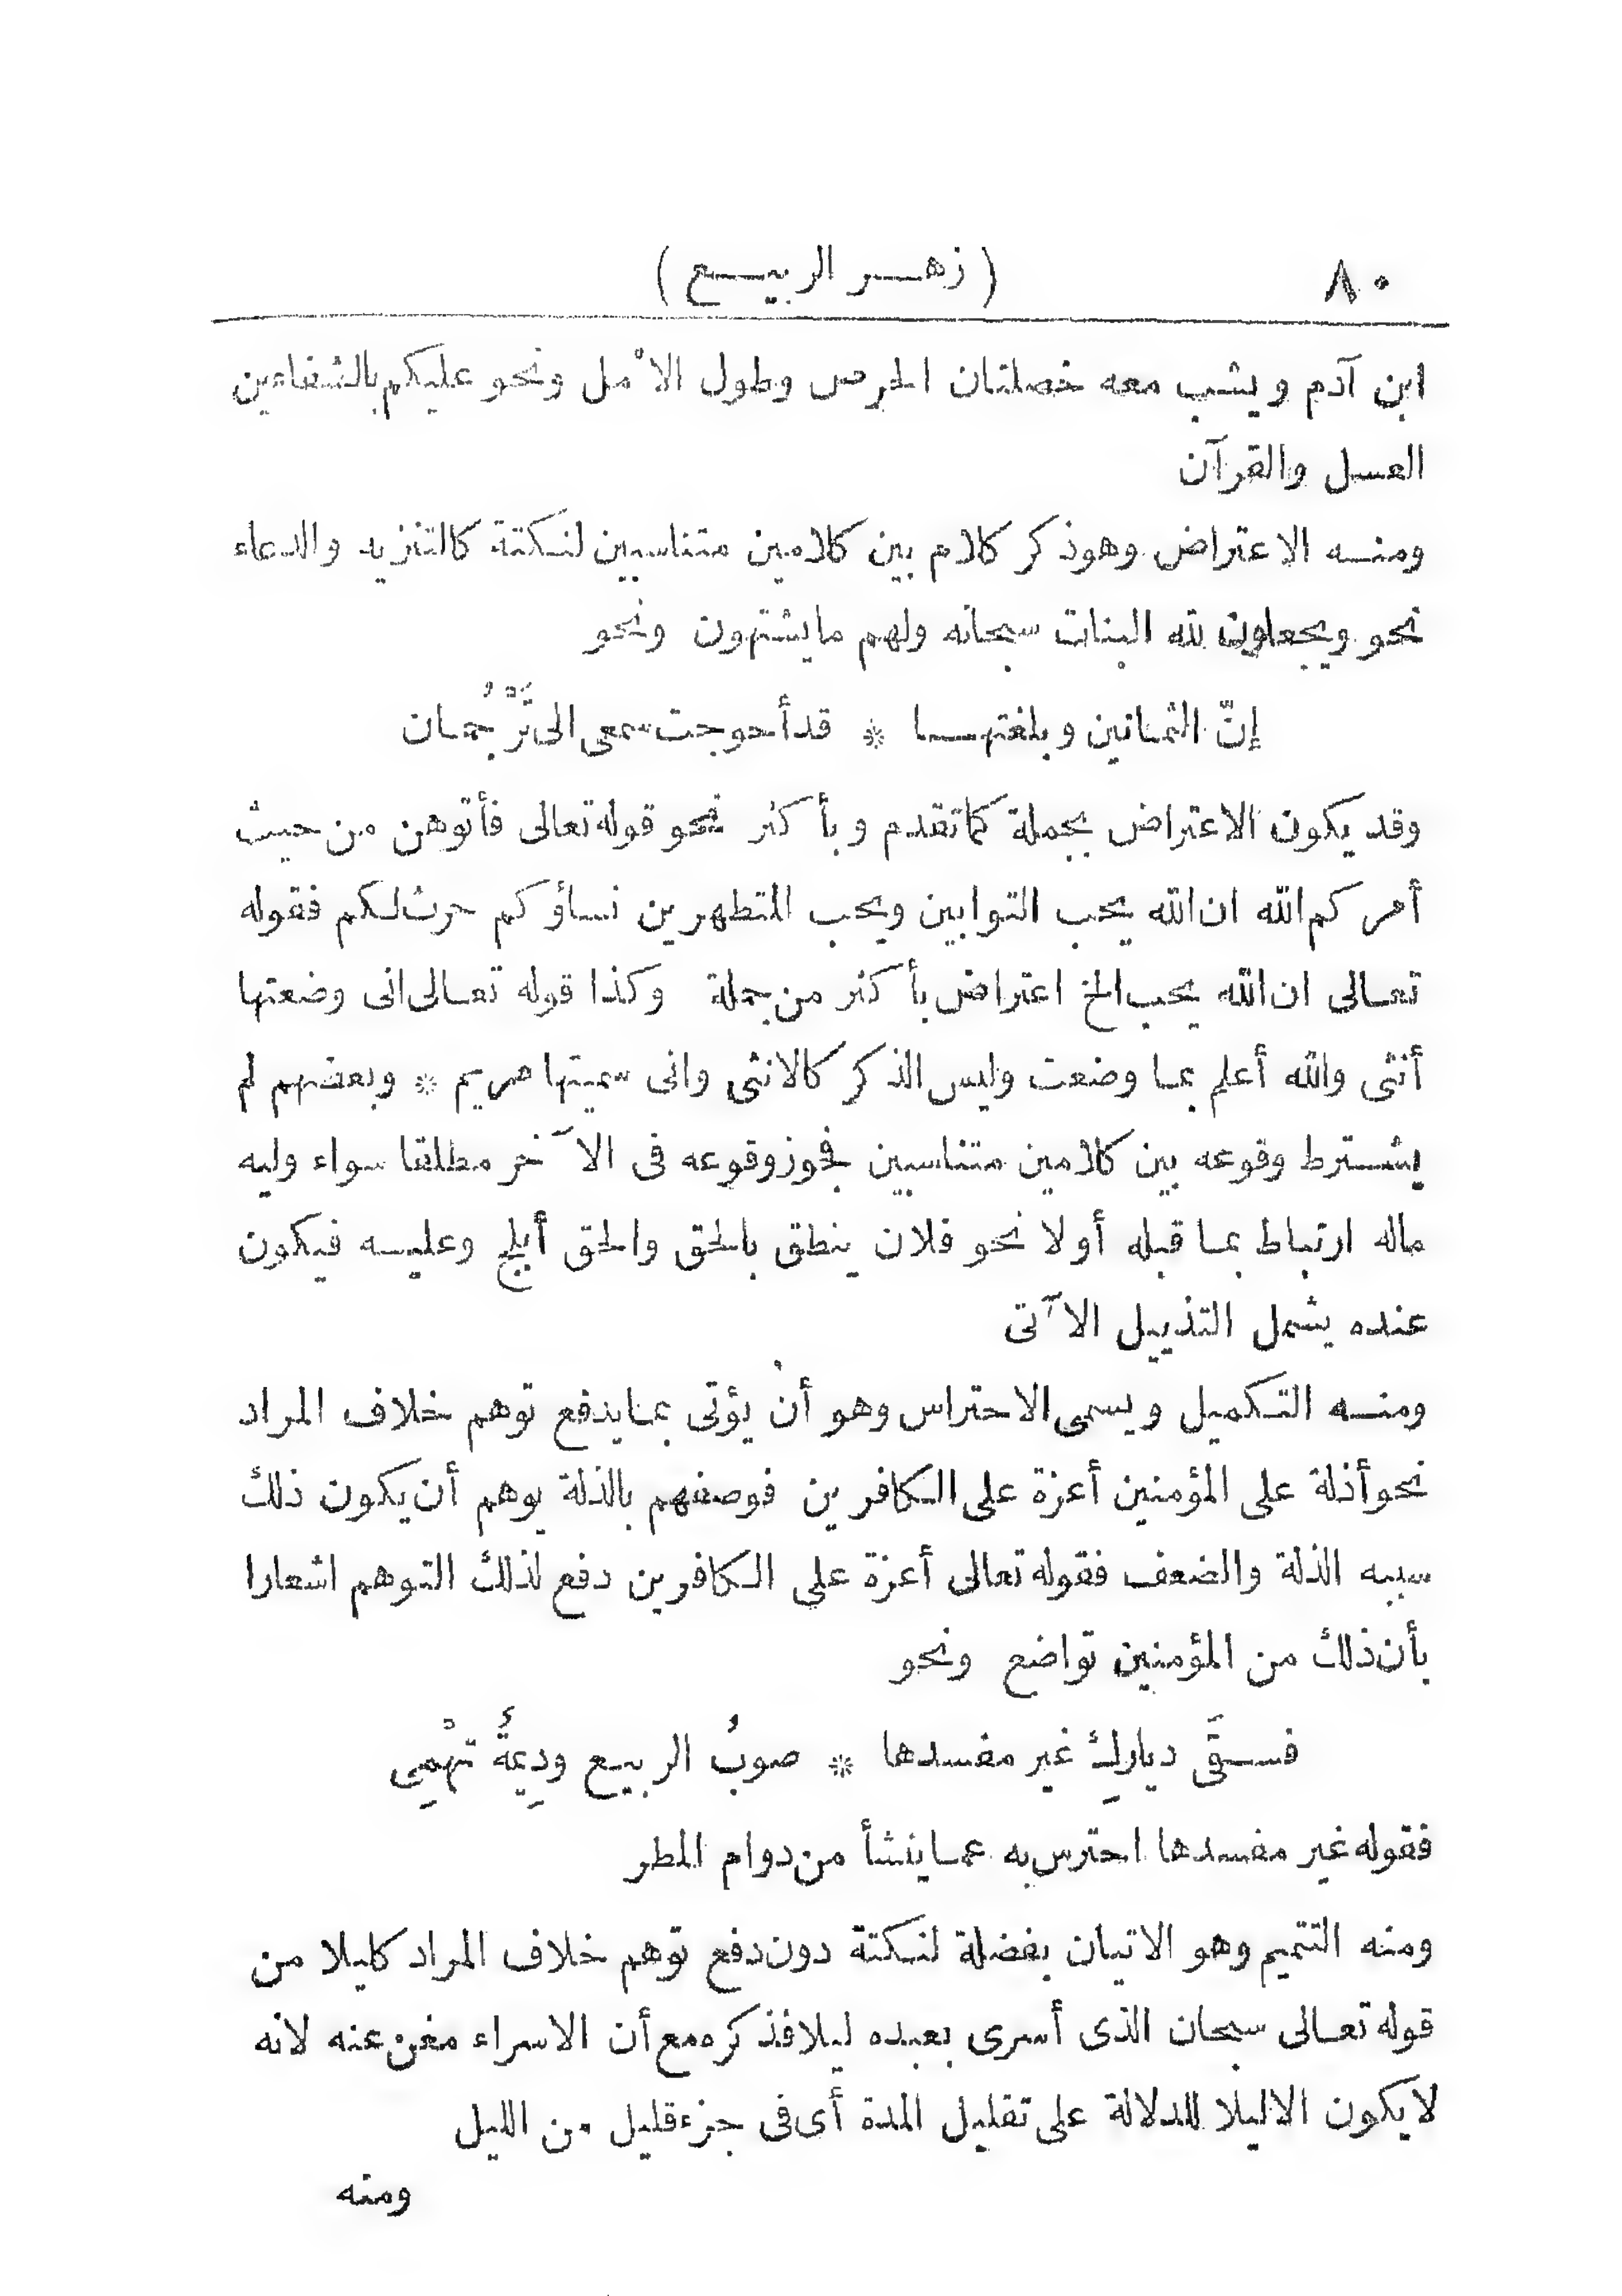 ٨٠ ( زهر الربيع )
ابن آدم ويشب معه خصلتان الحرص وطول الأمل ونحو عليكم بالشفاءين
العسل والقرآن
ومنه الاعتراض وهو ذكر كلام بين كلامين متناسبين لنكتة كالتنزيه والدعاء
نحو ويجعلون لله البنات سبحانه ولهم ما يشتهون ونحو
إنّ الثمانين وبلغتها * قد أحوجت سمعى الى تَرْجُمان
وقد يكون الاعتراض بجملة كما تقدم وبأكثر نحو قوله تعالى فأتوهن من حيث
أمركم الله ان الله يحب التوابين ويحب المتطهرين نساؤكم حرث لكم فقوله
تعالى ان الله يحب الخ اعتراض بأكثر من جملة وكذا قوله تعالى انى وضعتها
أنثى والله أعلم بما وضعت وليس الذكر كالانثى وانى سميتها مريم * وبعضهم لم
يشترط وقوعه بين كلامين متناسبين فجوز وقوعه فى الآخر مطلقا سواء وليه
ماله ارتباط بما قبله أولا نحو فلان ينطق بالحق والحق أبلج وعليه فيكون
عنده يشمل التذييل الآتى
ومنه التكميل ويسمى الاحتراس وهو أنْ يؤتى بما يدفع توهم خلاف المراد
نحو أذلة على المؤمنين أعزة على الكافرين فوصفهم بالذلة يوهم أن يكون ذلك
سببه الذلة والضعف فقوله تعالى أعزة على الكافرين دفع لذلك التوهم اشعارا
بأن ذلك من المؤمنين تواضع ونحو
فسقَى دياركِ غير مفسدها * صوبُ الربيع ودِيمةٌ تهْمِى
فقوله غير مفسدها احترس به عما ينشأ من دوام المطر
ومنه التتميم وهو الاتيان بفضلة لنكتة دون دفع توهم خلاف المراد كليلا من
قوله تعالى سبحان الذى أسرى بعبده ليلا فذكره مع أن الاسراء مغن عنه لانه
لا يكون الا ليلا للدلالة على تقليل المدة أى فى جزء قليل من الليل
ومنه